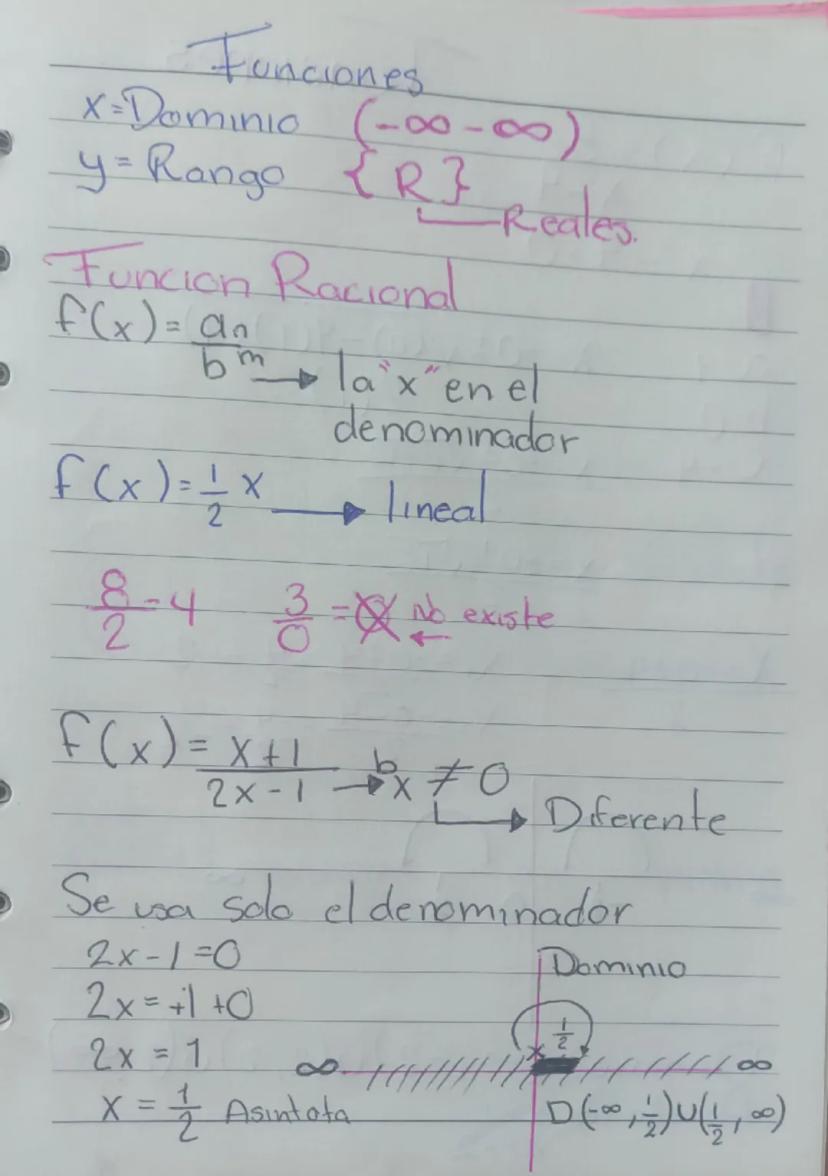 Funciones
x=Dominio (-∞-∞)
y=Rango {R}
Reales.
Funcion Racional
f(x)=an/b^m → la "x" en el
denominador
f(x)=1/2 x → lineal
8/2-4 3/0= No existe
f(x)=x+1/2x-1 → bx ≠0
Diferente
Se usa solo el denominador
2x-1=0 Dominio
2x=+1+0
1/2
2x=1 ∞ x ∞
x=1/2 Asintota D(-∞,1/2)U(1/2,∞)